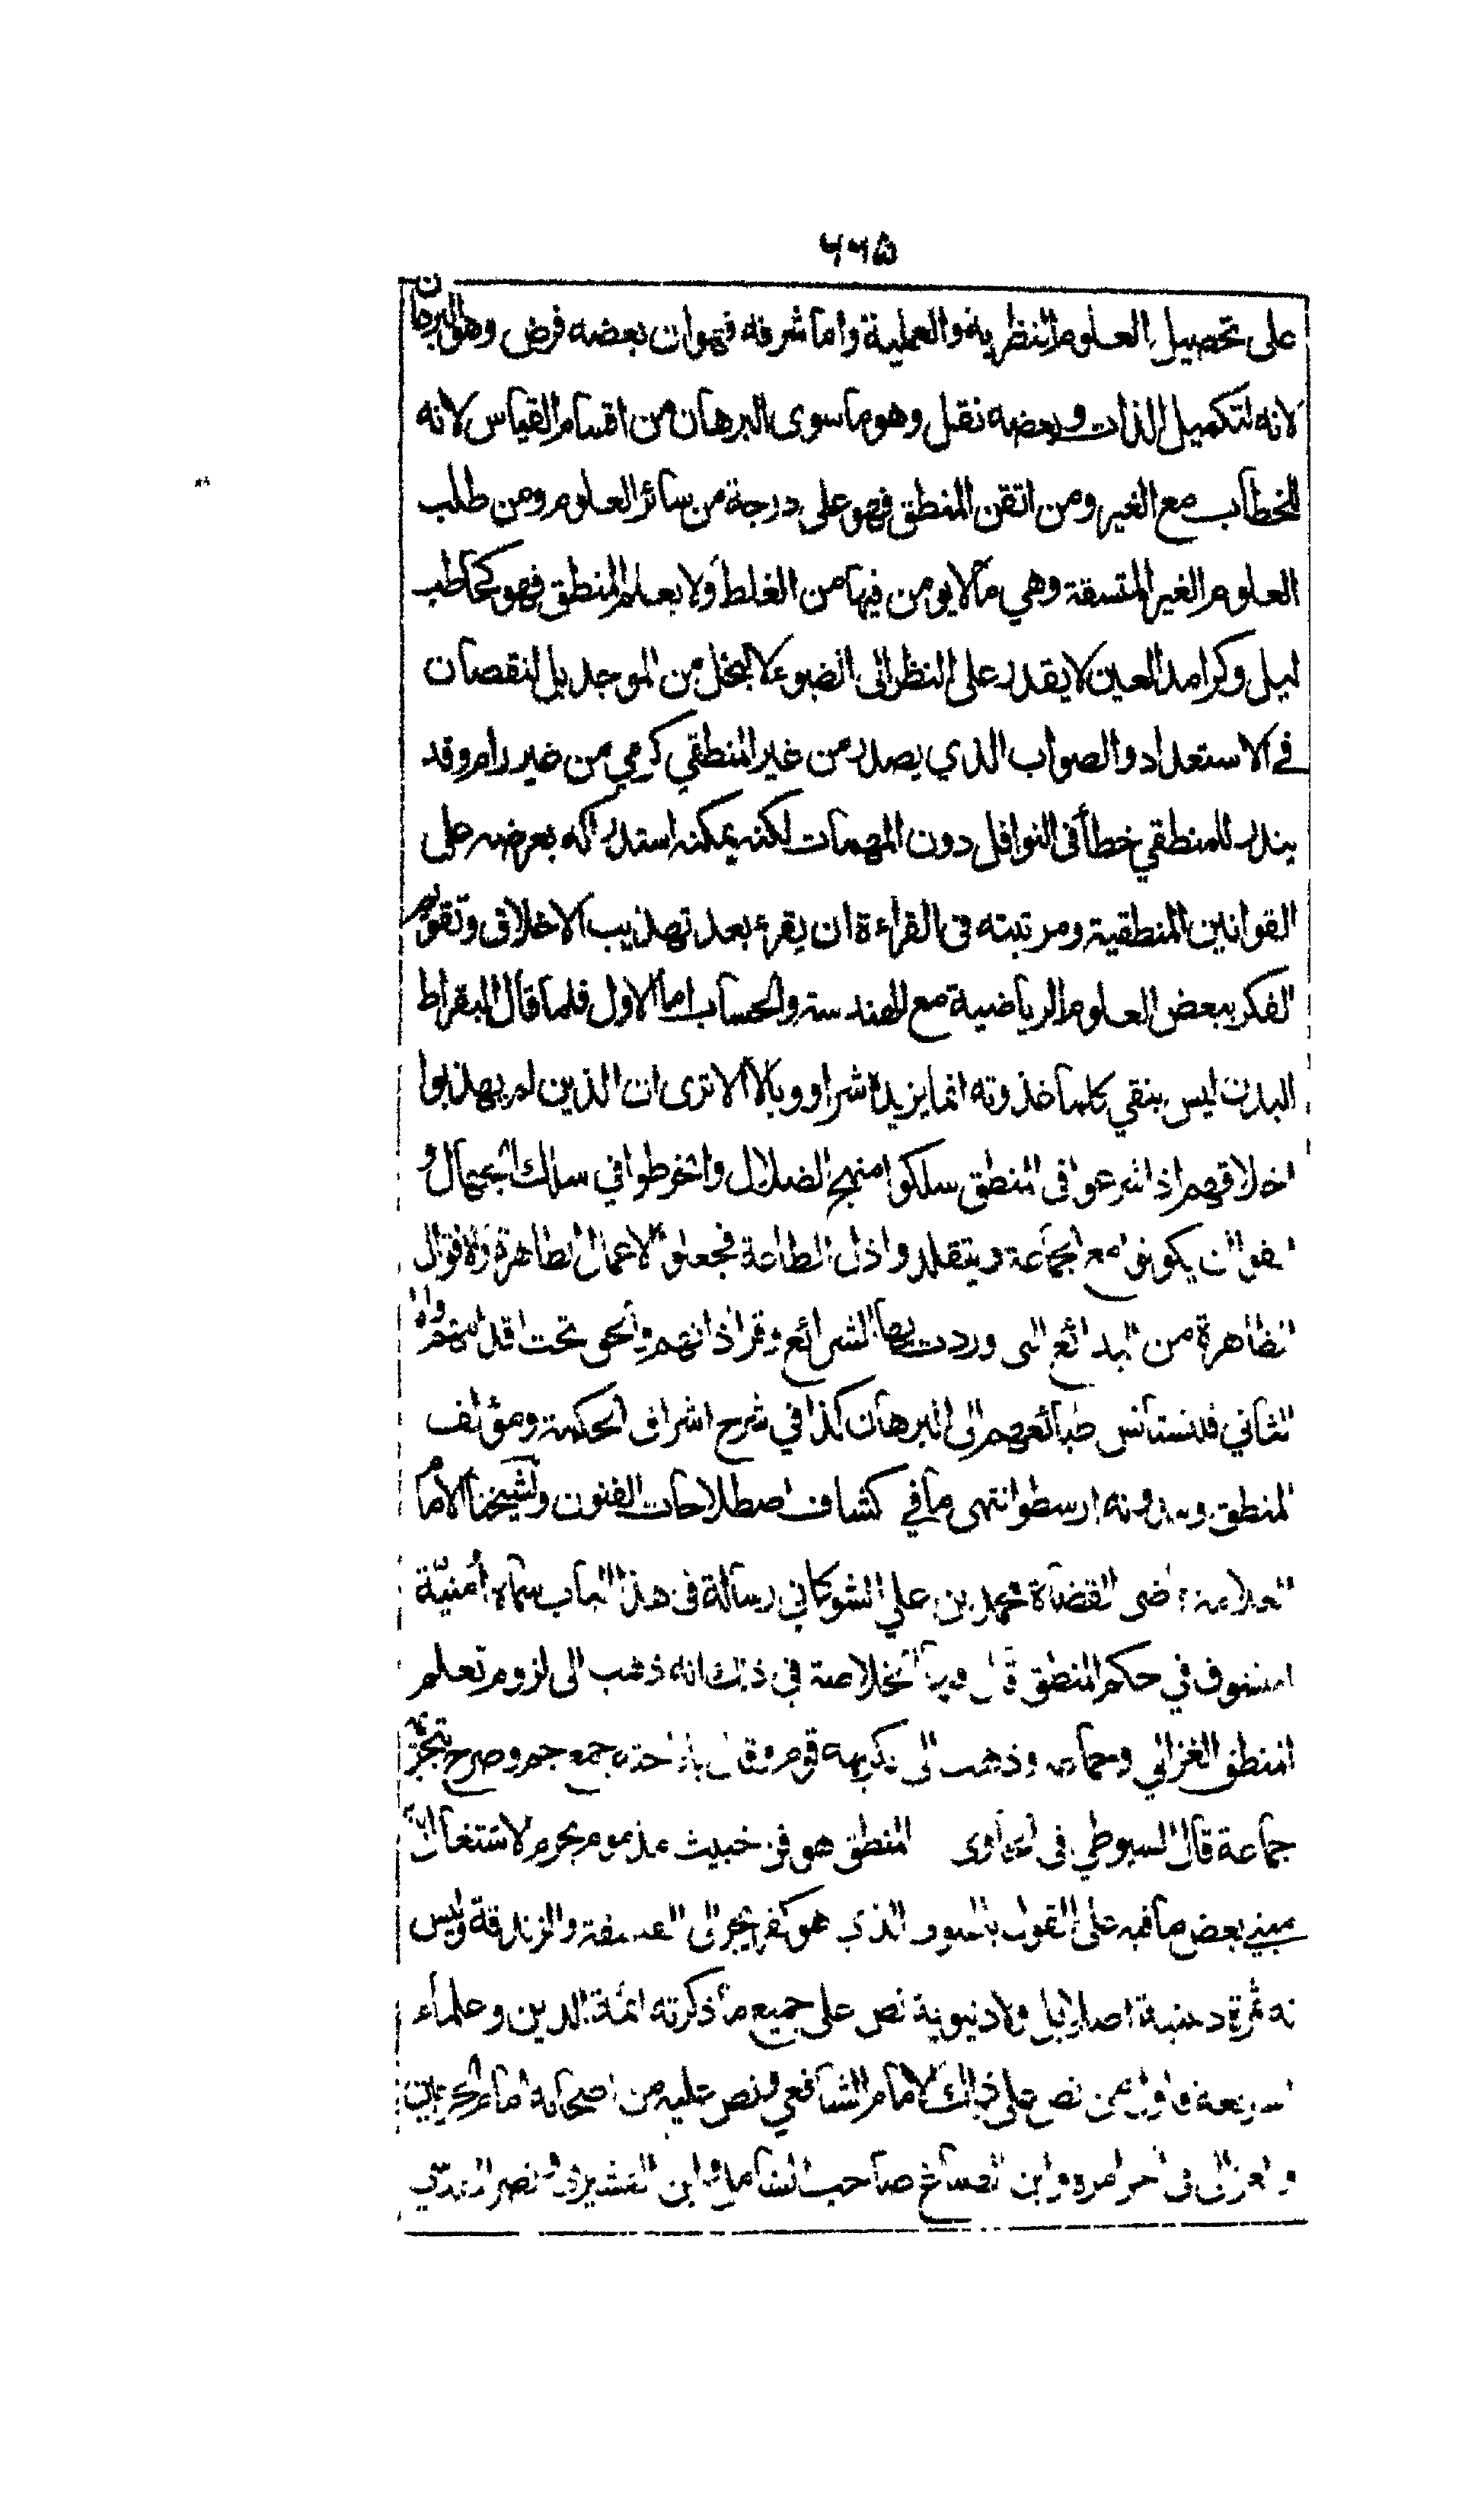 ٦٦٥
على تحصيل العلوم النظرية والعملية واما شرفه فهو ان بعضه فرض وهو البرهان
لانه لتكميل الذات وبعضه نفل وهو ما سوى البرهان من اقسام القياس لانه
للخطاب مع الغير ومن اتقن المنطق فهو على درجة من سائر العلوم ومن طلب
العلوم الغير المتسقة وهي ما لا يومن فيها من الغلط ولا يعلم المنطق فهو كحاطب
ليل وكرامد العين لا يقدر على النظر الى الضوء لا لبخل من الموجد بل لنقصان
في الاستعداد والصواب الذي يصدر من غير المنطقي كرمي من غير رام وقد
يندر للمنطقي خطأ في النوافل دون المهمات لكنه يمكنه استدراكه بعرضه على
القوانين المنطقية ومرتبته في القراءة ان يقرء بعد تهذيب الاخلاق وتقويم
الفكر ببعض العلوم الرياضية مع الهندسة والحساب اما الاول فلما قال البقراط
البدن ليس بنقي كلما غذوته انما يزيده شرا ووبالا الا ترى ان الذين لم يهذبوا
اخلاقهم اذا شرعوا في المنطق سلكوا منهج الضلال وانخرطوا في سلك الجهال و
انفوا ان يكونوا مع الجماعة ويتقلدوا ذل الطاعة فجعلوا الاعمال الطاهرة والاقوال
الظاهرة من البدائع التي وردت بها الشرائع وقر اذانهم والحق تحت اقدامهم واما
الثاني فلتستانس طبائعهم الى البرهان كذا في شرح اشراق الحكمة ومؤلف
المنطق ومدونه ارسطو انتهى ما في كشاف اصطلاحات الفنون ولشيخنا الامام
العلامة قاضى القضاة محمد بن علي الشوكاني رسالة في هذا الباب سماه أمنيّة
المتشوف في حكم المنطق قال فيها الخلاصة في ذلك انه ذهب الى لزوم تعلم
المنطق الغزالي وجماعة وذهب الى تكريهه قوم وقال باباحته جمع جم وصرح بتحريمه
جماعة قال السيوطي في الحاوى المنطق هو فن خبيث مذموم يحرم الاشتغال به
مبني بعض ما فيه على القول بالهيولى الذي هو كفر يجر الى الفلسفة والزندقة وليس
له ثمرة دينية اصلا بل ولا دنيوية نص على جميع ما ذكرته ائمة الدين وعلماء
الشريعة فاول من نص على ذلك الامام الشافعي ونص عليه من اصحابه امام الحرمين
والغزالى في اخر امره وابن الصباغ صاحب الشامل وابن القشيري ونصر المقدسي